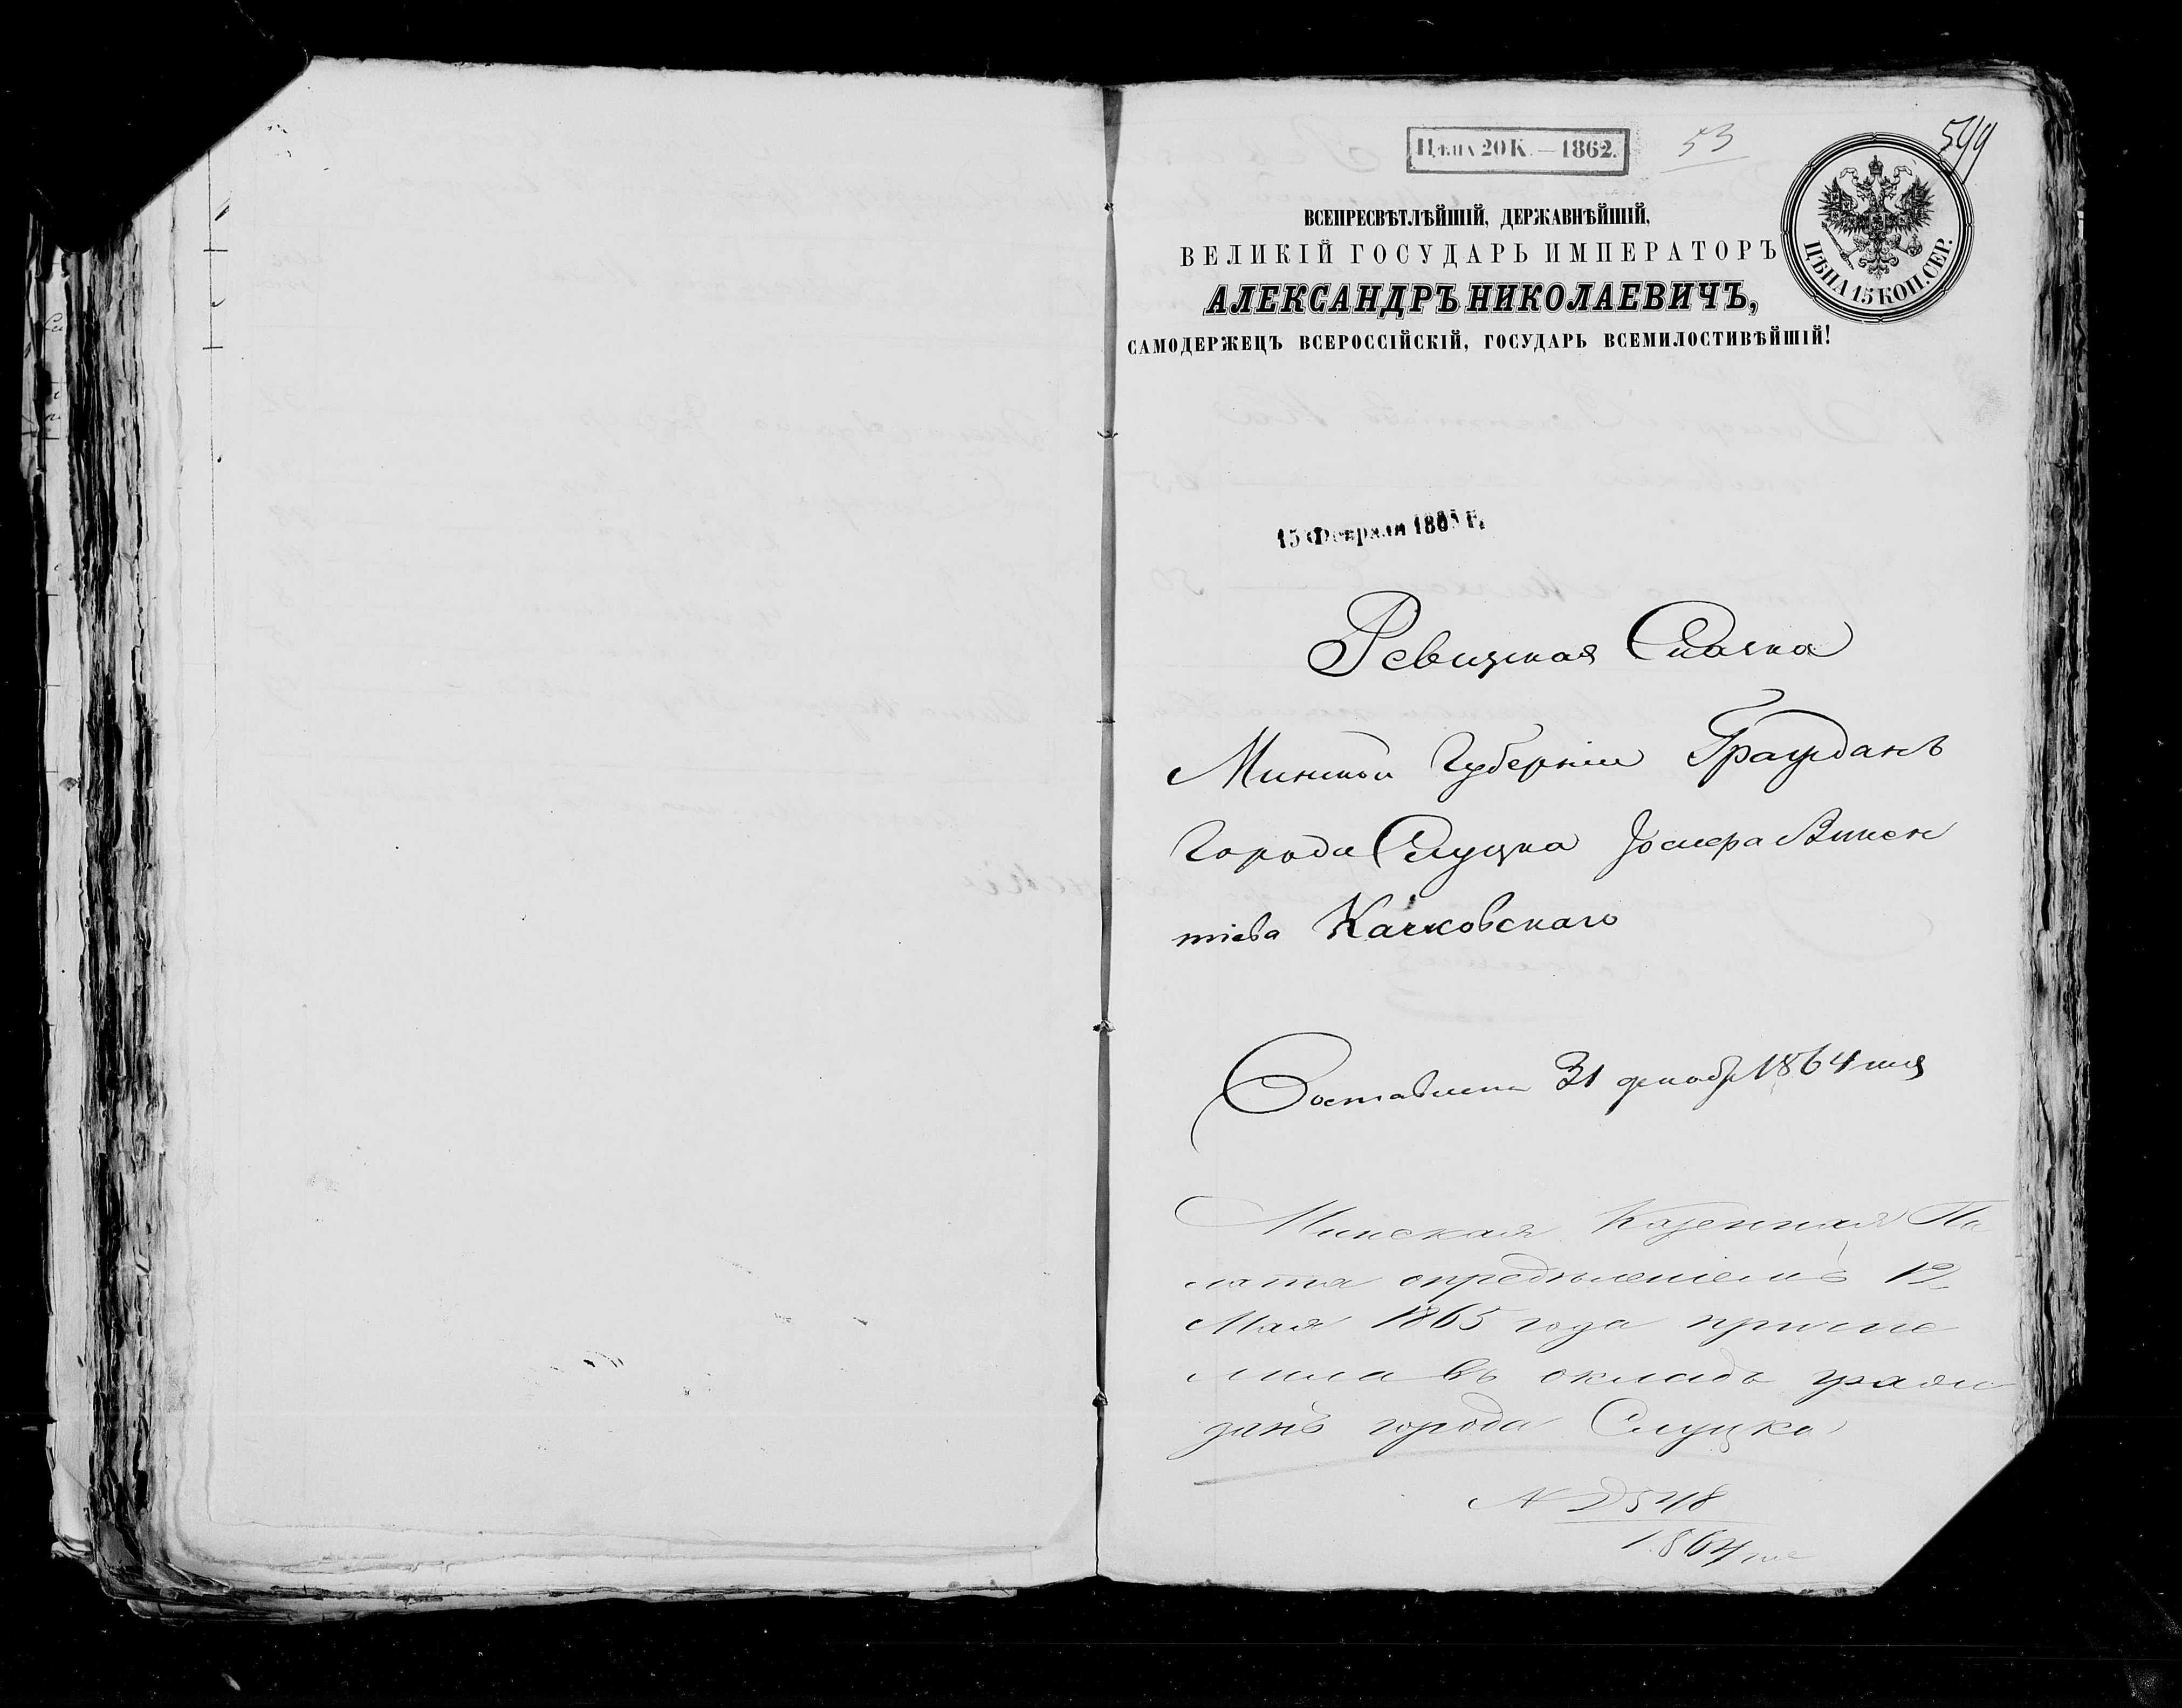 Цѣна 20 К. — 1862.
53
599
ВСЕПРЕСВѢТЛѢЙШІЙ, ДЕРЖАВНѢЙШІЙ,
ВЕЛИКІЙ ГОСУДАРЬ ИМПЕРАТОРЪ
АЛЕКСАНДРЪ НИКОЛАЕВИЧЪ,
САМОДЕРЖЕЦЪ ВСЕРОССІЙСКІЙ, ГОСУДАРЬ ВСЕМИЛОСТИВѢЙШІЙ!
ЦѢНА 15 КОП. СЕР.
15 Февраля 1865 г.
Ревизская Сказка
Минской Губерніи Гражданъ
Города Слуцка Іосифа Викен
тіева Качковскаго
Составлена 31 декабр 1864 года
Минская Казенная Па
лата опредѣленіемъ 12
Мая 1865 года причис
лила въ окладъ граж
данъ города Слуцка
N 2548
1864